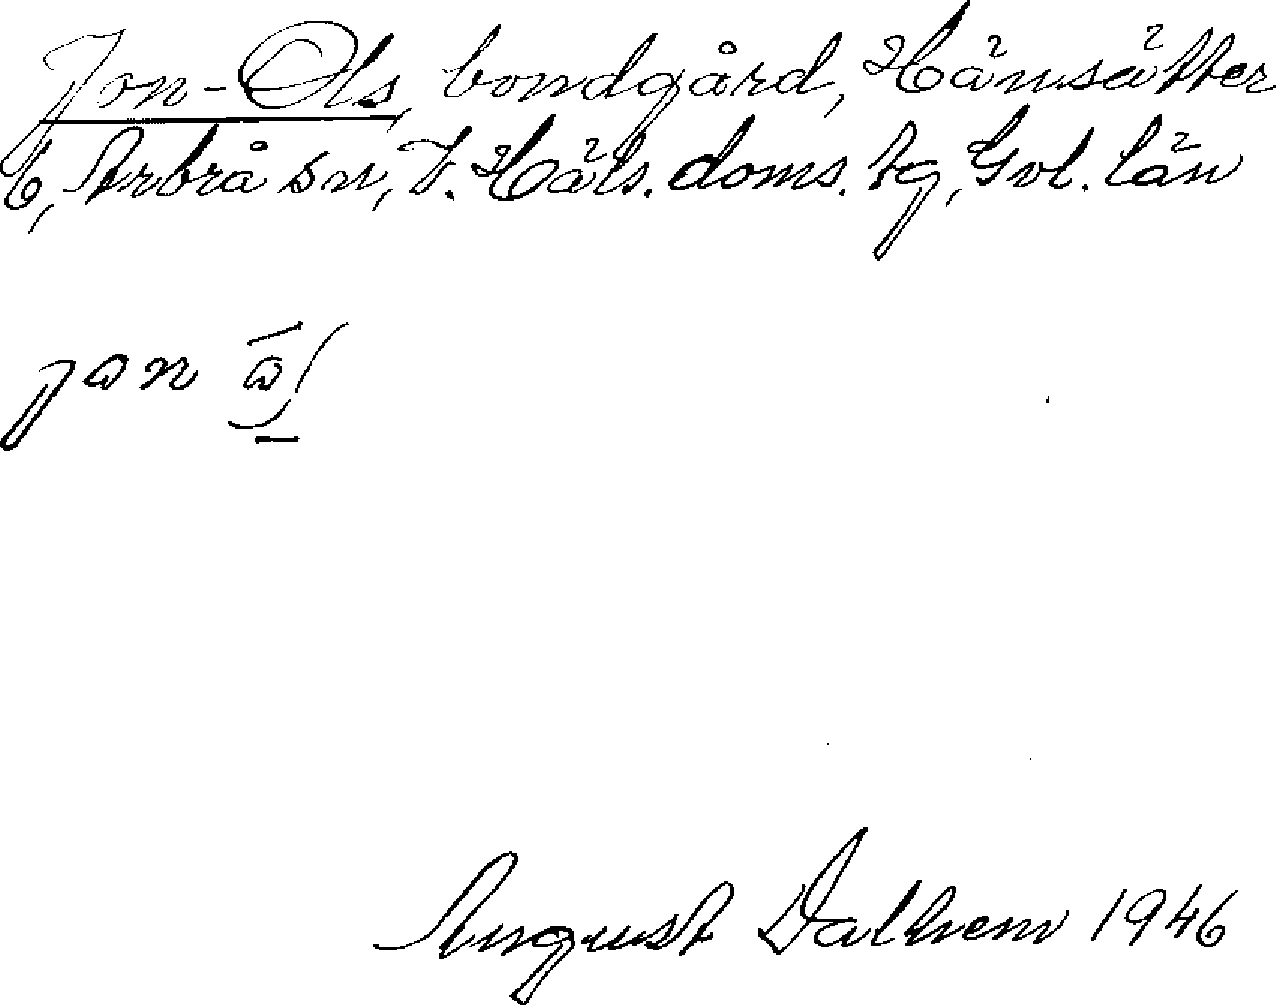 Jon-Ols, bondgård, Hänsätter
6, Arbrå sn, V. Häls. doms. tg, Gvl. län
jon
August Dalhem 1946